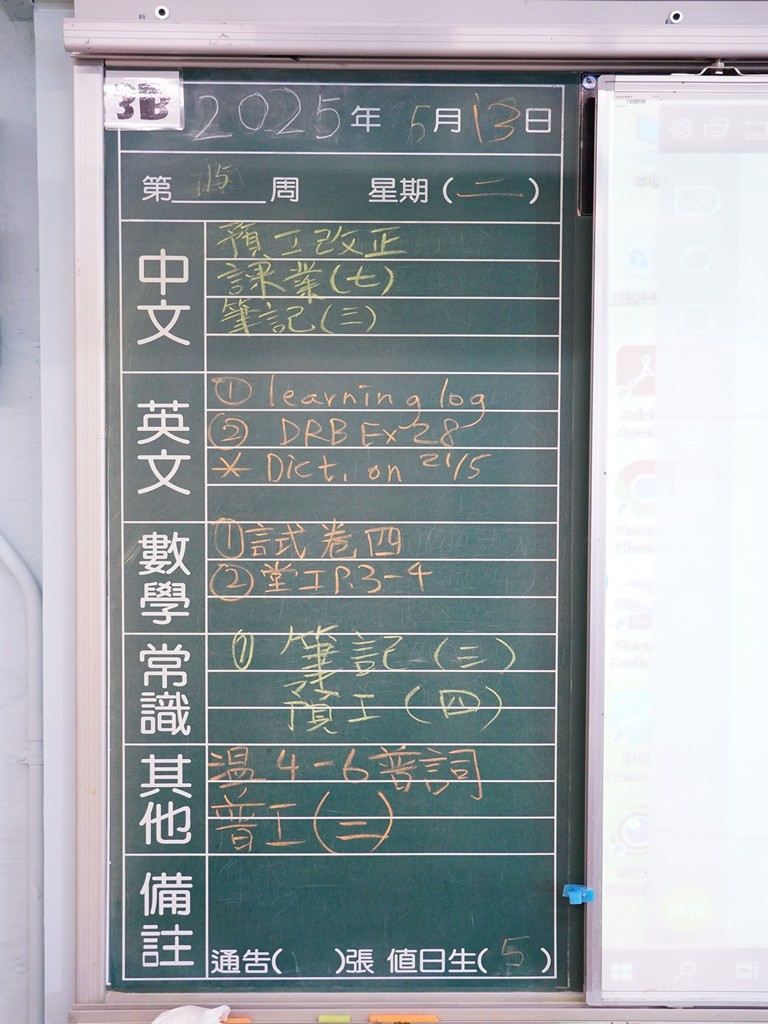 3B
2025年 5月13日
第 15 周 星期(二)
中文
預工改正
課業(七)
筆記(三)
英文
① learning log
② DRB Ex 28
* Dict. on 21/5
數學
①試卷四
②堂工P.3-4
常識
① 筆記(三)
預工(四)
其他
溫4-6普詞
普工(二)
備註
通告( )張 值日生(5)